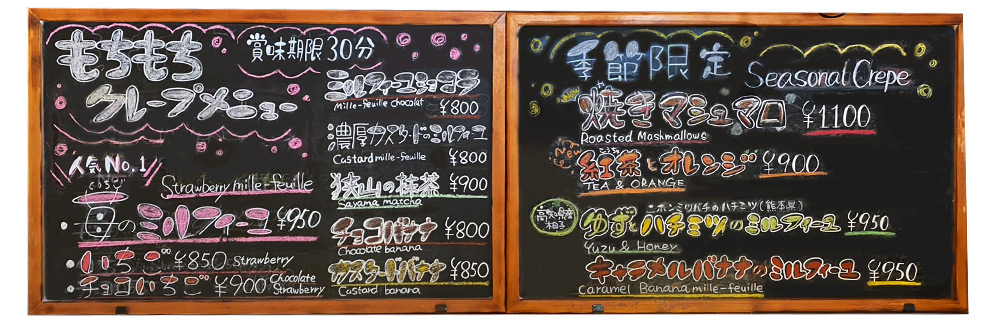 もちもち
クレープメニュー
賞味期限30分
人気No.1
Strawberry mille-feuille
苺のミルフィーユ ¥950
いちご ¥850 Strawberry
チョコいちご ¥900 Chocolate Strawberry
ミルフィーユショコラ
Mille-feuille chocolat ¥800
濃厚カスタードのミルフィーユ
Custard mille-feuille ¥800
狭山の抹茶 ¥900
Sayama matcha
チョコバナナ ¥800
Chocolate banana
カスタードバナナ ¥850
Custard banana
季節限定
Seasonal Crepe
New
焼きマシュマロ ¥1100
Roasted Mashmallows
New
紅茶とオレンジ ¥900
TEA & ORANGE
高知県産
柚子
ニホンミツバチのハチミツ(熊本県)
ゆずとハチミツのミルフィーユ ¥950
Yuzu & Honey
キャラメルバナナのミルフィーユ ¥950
Caramel Banana mille-feuille